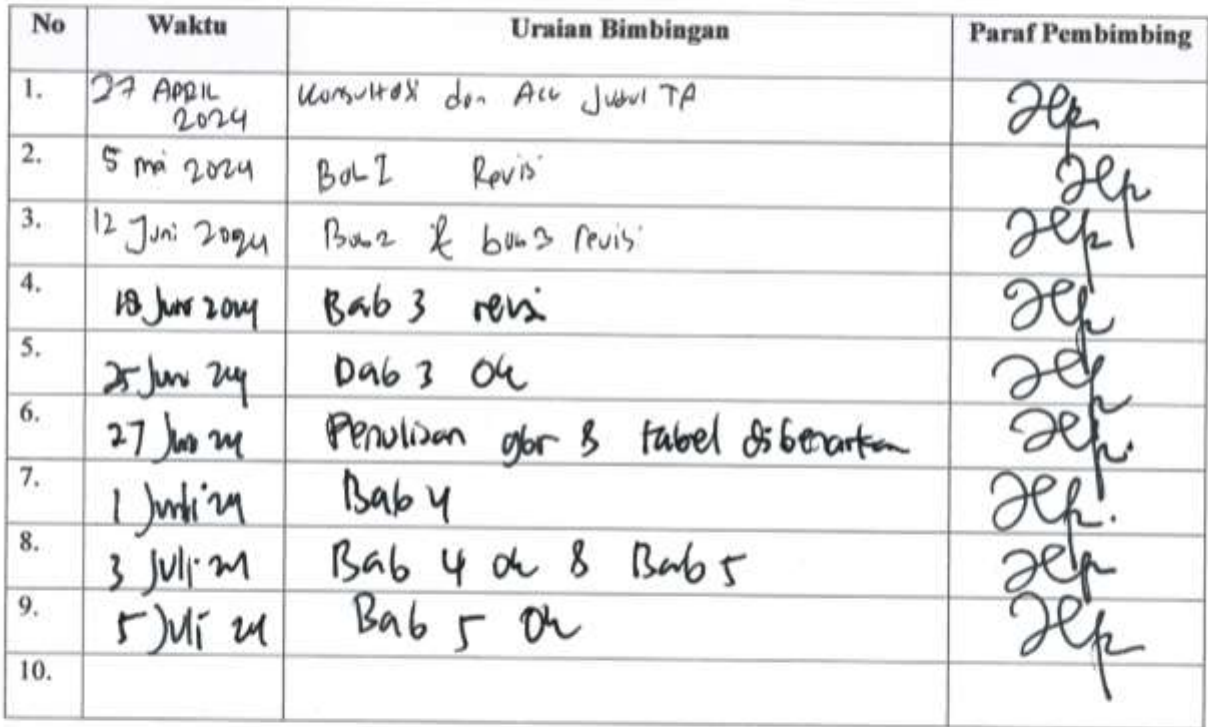 No Waktu Uraian Bimbingan Paraf Pembimbing
1. 27 APRIL 2024 Konsultasi dan Acc Judul TA
2. 5 mei 2024 Bab I Revisi
3. 12 Juni 2024 Bab 2 & bab 3 revisi
4. 18 Juni 2024 Bab 3 revisi
5. 25 Juni 24 Bab 3 Ok
6. 27 Juni 24 Penulisan gbr & tabel dibenarkan
7. 1 Juli 24 Bab 4
8. 3 Juli 24 Bab 4 ok & Bab 5
9. 5 Juli 24 Bab 5 Ok
10.